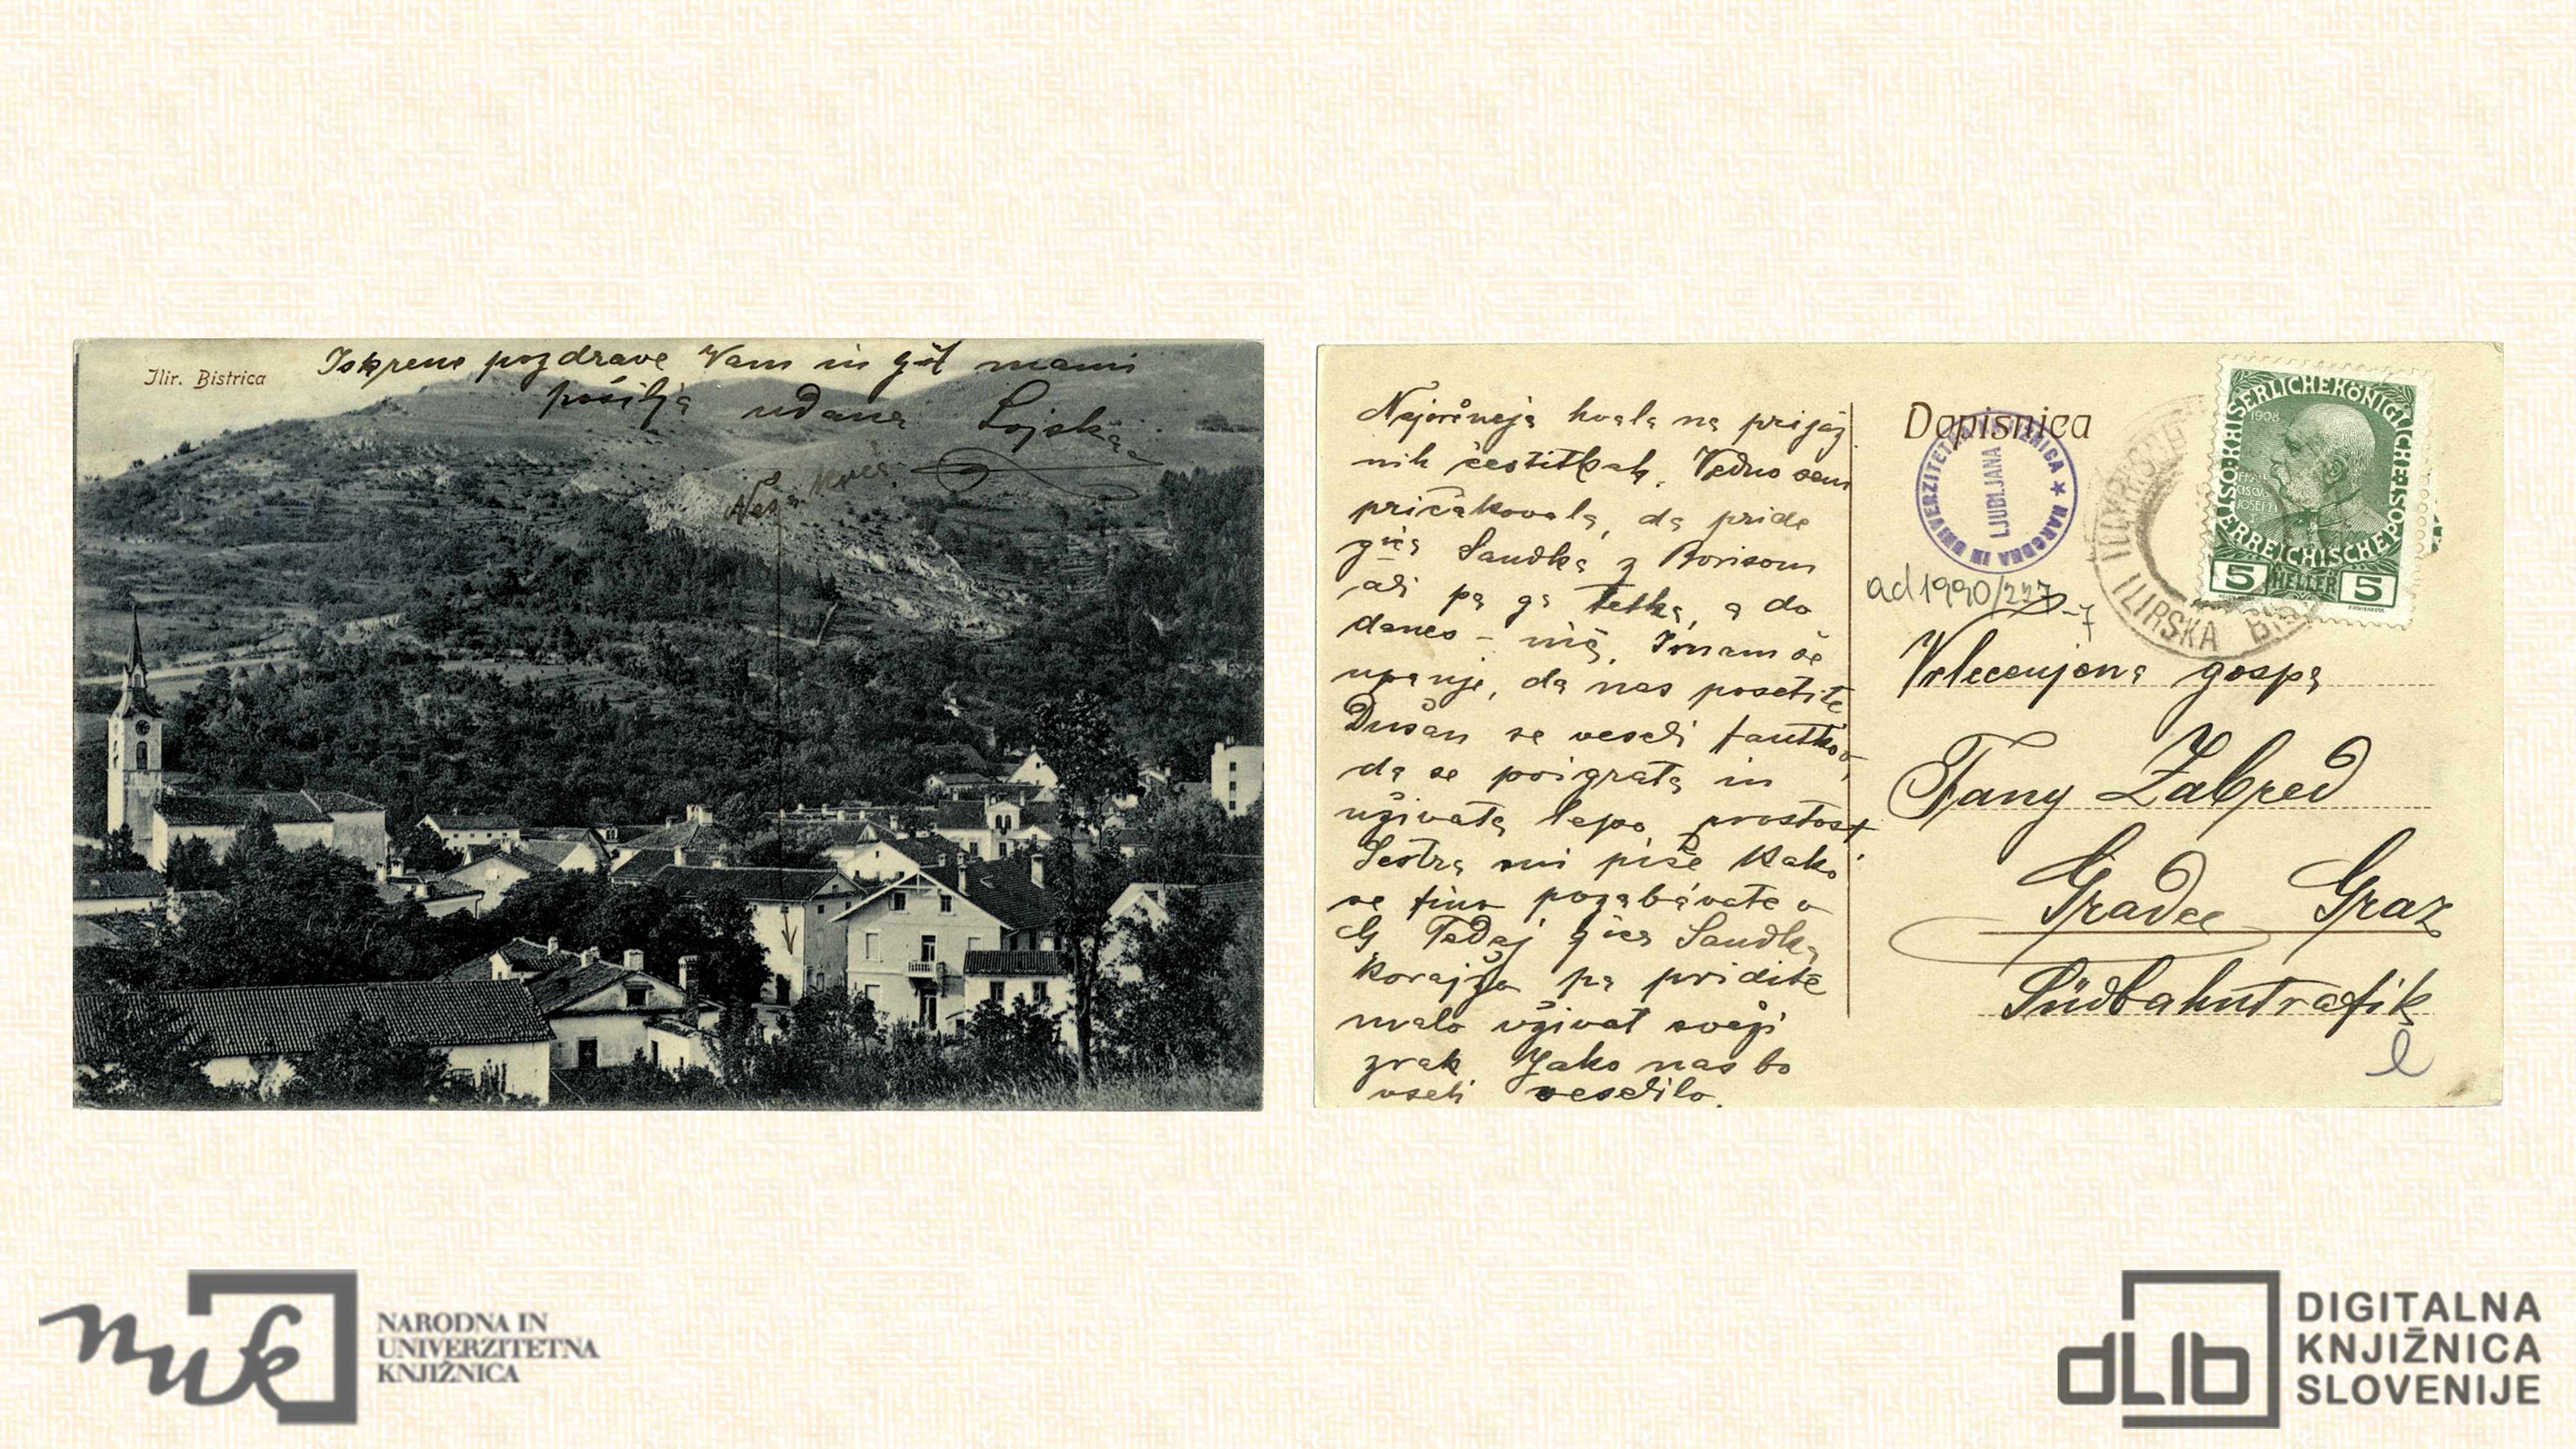 Ilir. Bistrica
Iskrene pozdrave Vam in gst mami
pošilja udana Lojska
Naša hiša
Najsrčneja hvala na prijaz
nih čestitkah. Vedno sem
pričakovala, da pride
gica Sandka z Borisom
ali pa ga tetka, a do
danes - nič. Imam še
upanje, da nas posetite
Dušan se veseli fantkov,
da se poigrata in
uživata lepo prostost
Sestra mi piše kako
se fino pozabavate v
G Tedaj gica Sandka
korajžo pa pridite
malo uživat svežji
zrak Jako nas bo
vseli veselilo.
Dopisnica
NARODNA IN UNIVERZITETNA KNJIŽNICA ★
LJUBLJANA
KAISERLICHE KÖNIGLICHE ÖSTERREICHISCHE POST
1908
5 HELLER 5
ILIRSKA
ad 1990/227-7
Velecenjena gospa
Fany Zabred
Gradec Graz
Südbahntrafik
nuk
NARODNA IN
UNIVERZITETNA
KNJIŽNICA
dLib
DIGITALNA
KNJIŽNICA
SLOVENIJE